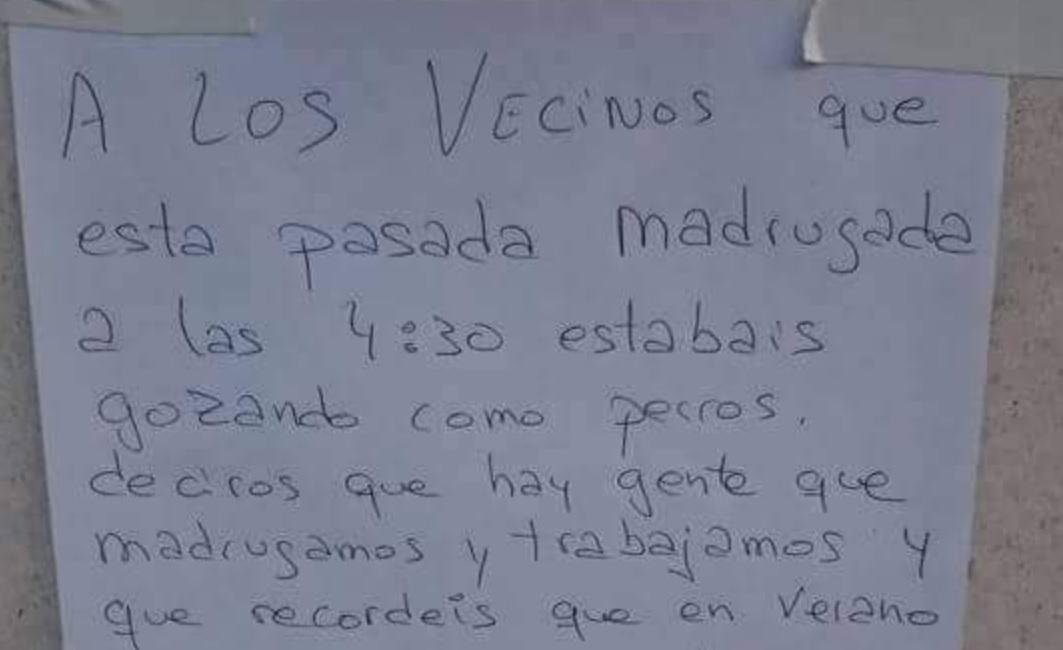 A LOS VECINOS que
esta pasada madrugada
a las 4:30 estabais
gozando como perros.
deciros que hay gente que
madrugamos y trabajamos y
que recordeis que en verano